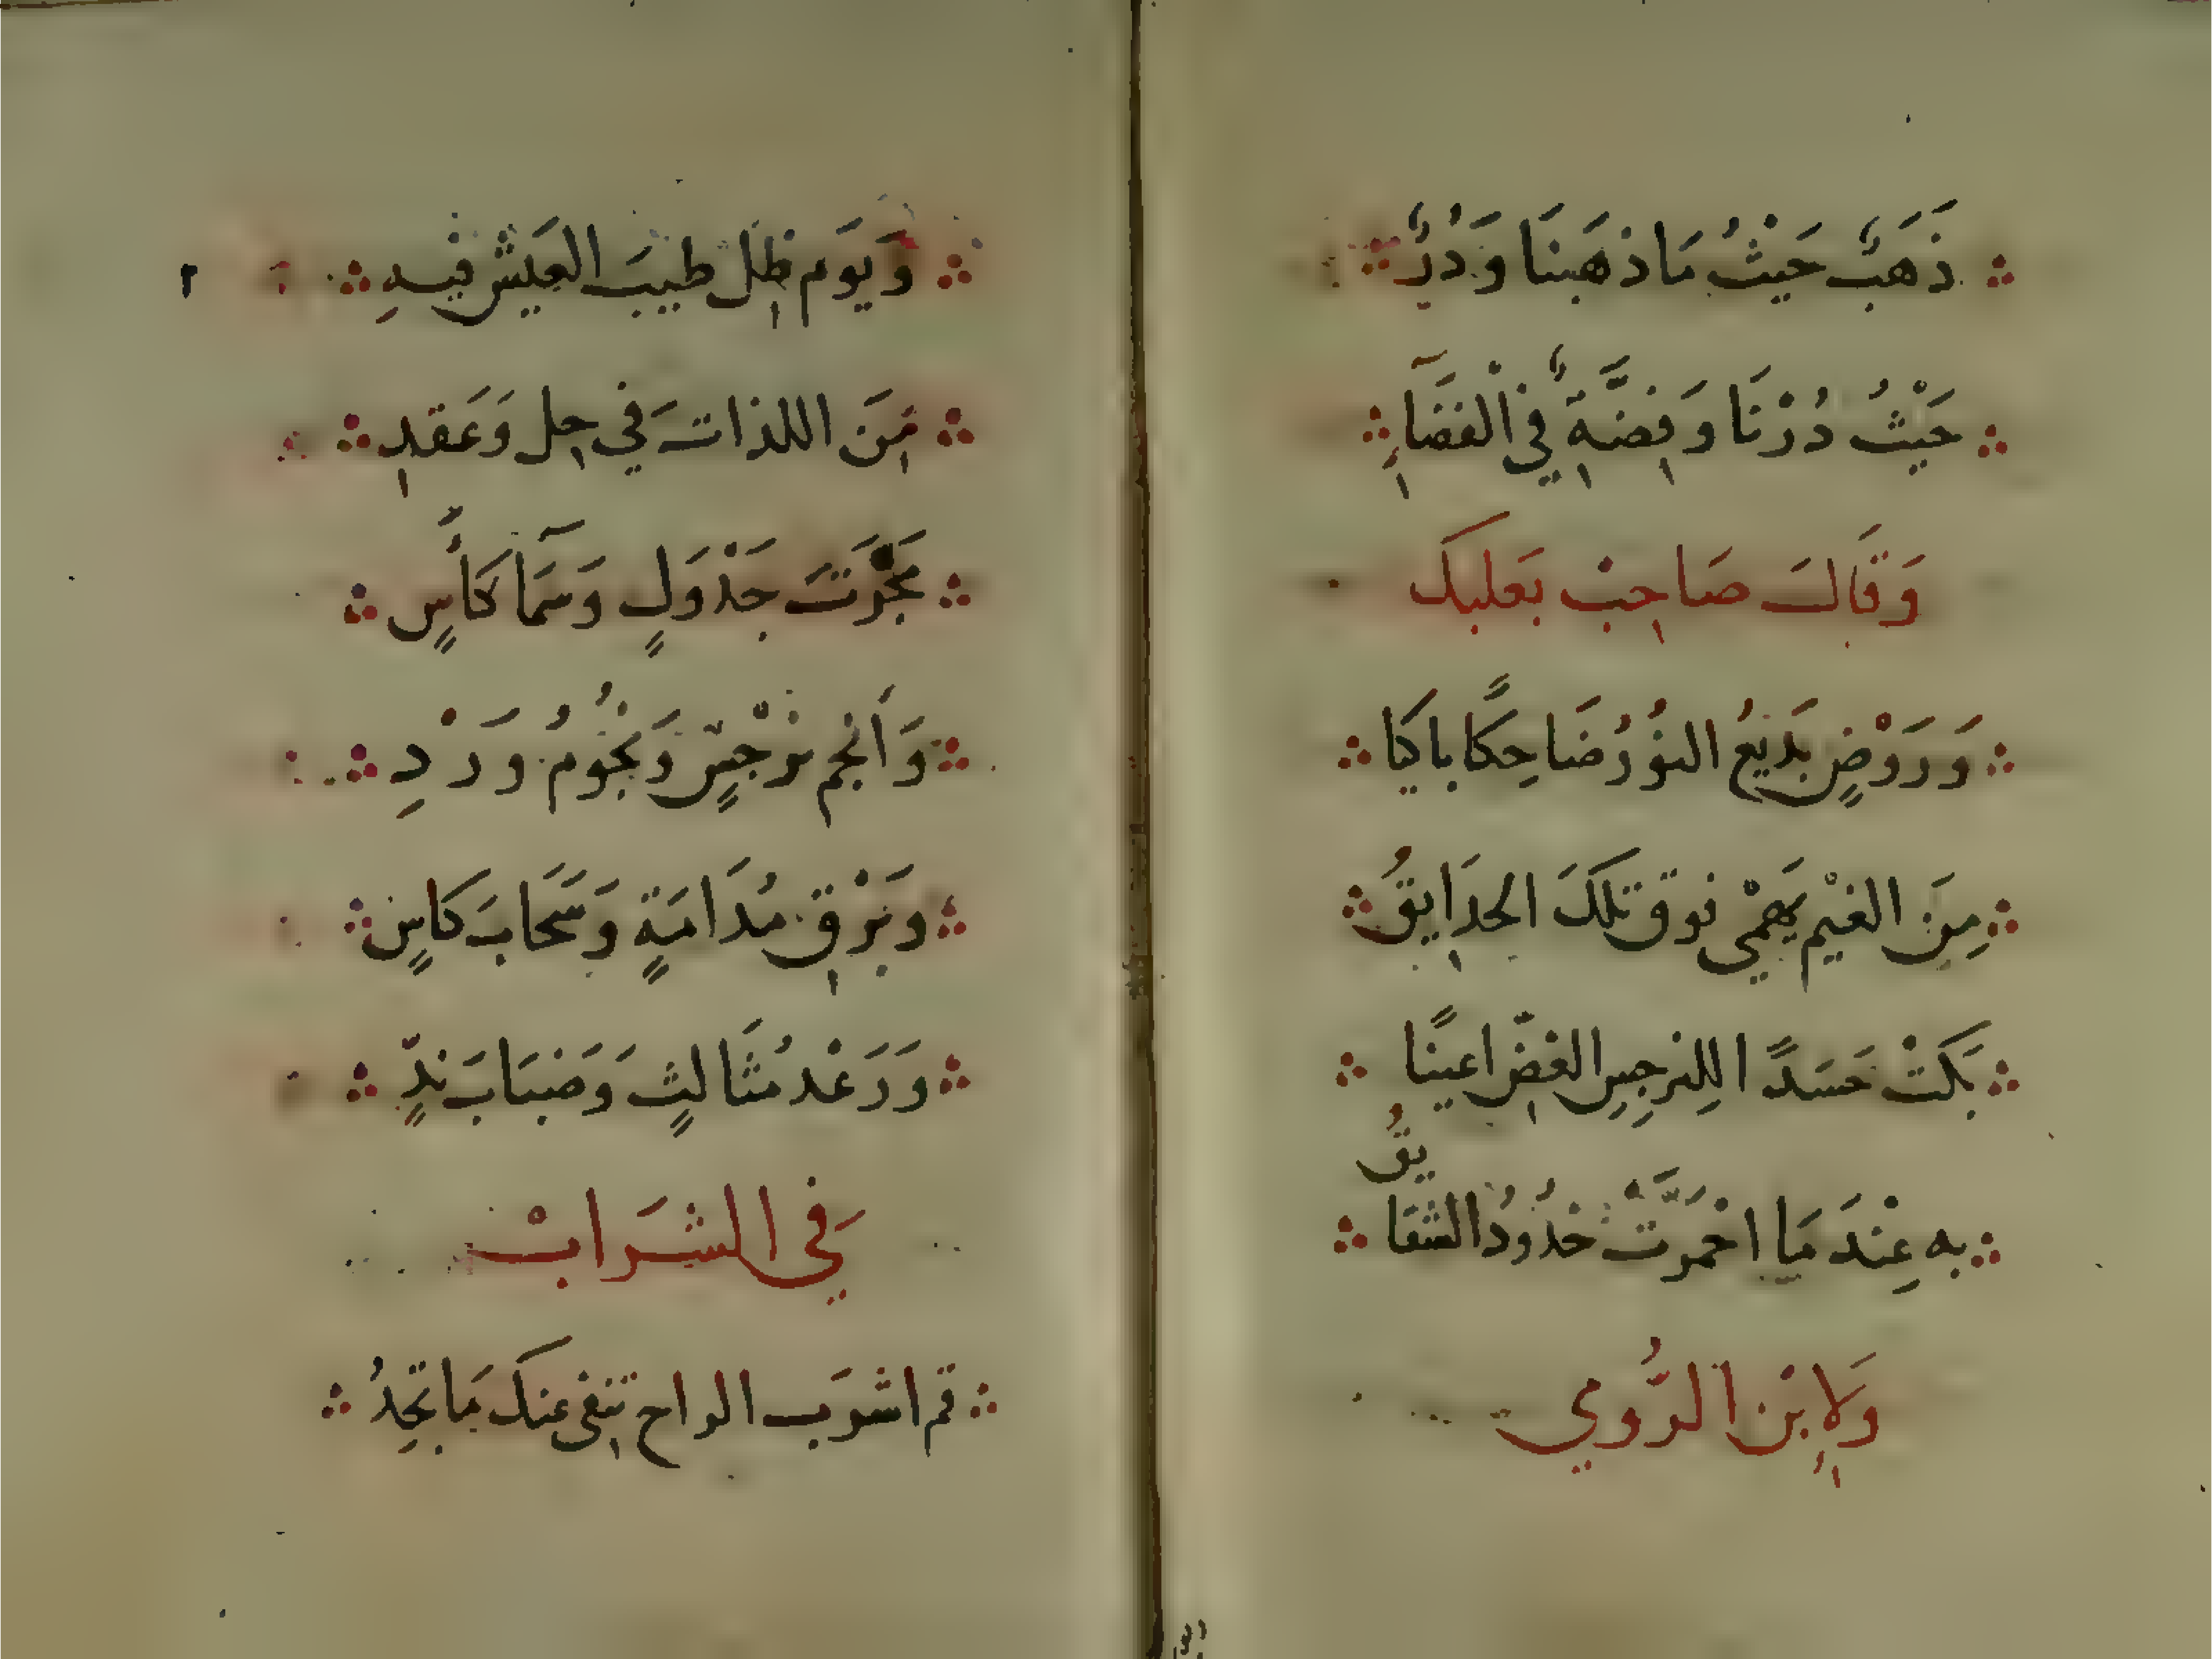 ذَهَبٌ حَيْثُ مَا ذهَبنَا وَدُرٌّ
حَيْثُ دُرْنَا وَفِضَّةٌ فِي الْفَضَآءِ
وَقَالَ صَاحِبْ بَعلبَك
وَرَوْضٍ بَدَيعُ النوُرُ ضَاحِكًا باكيا
مِنَ الغيْم يَهمْي فوق تلكَ الحدَايِقُ
بَكَتْ حَسَدًا للِنرجِسِ الغَضِّ اعينًا
يقُ
به عِنْدَ مَا احْمَرَّتْ خدُودُ الشقَا
وَلإِبْن الرُّومي
وَيَوَم ظِل طيبَ العَيَش فيهِ
مِنَ اللذاتَ في حِل وَعَقدِ
مَجَرَّتَ جَدْوَلٍ وَسَمَا كَأسٍ
وَأَنجِم نرْجِسٍ وَنُجُومُ وَرْدِ
وَبَرْقِ مُدَامَةٍ وَسَحَابَ كَاسٍ
وَرَعْد مُثَالثٍ وَضبَابَ نَدٍّ
فَي الشَرَابْ
قم اشرَب الراح تنفِى عنكَ مَا تجِدُ